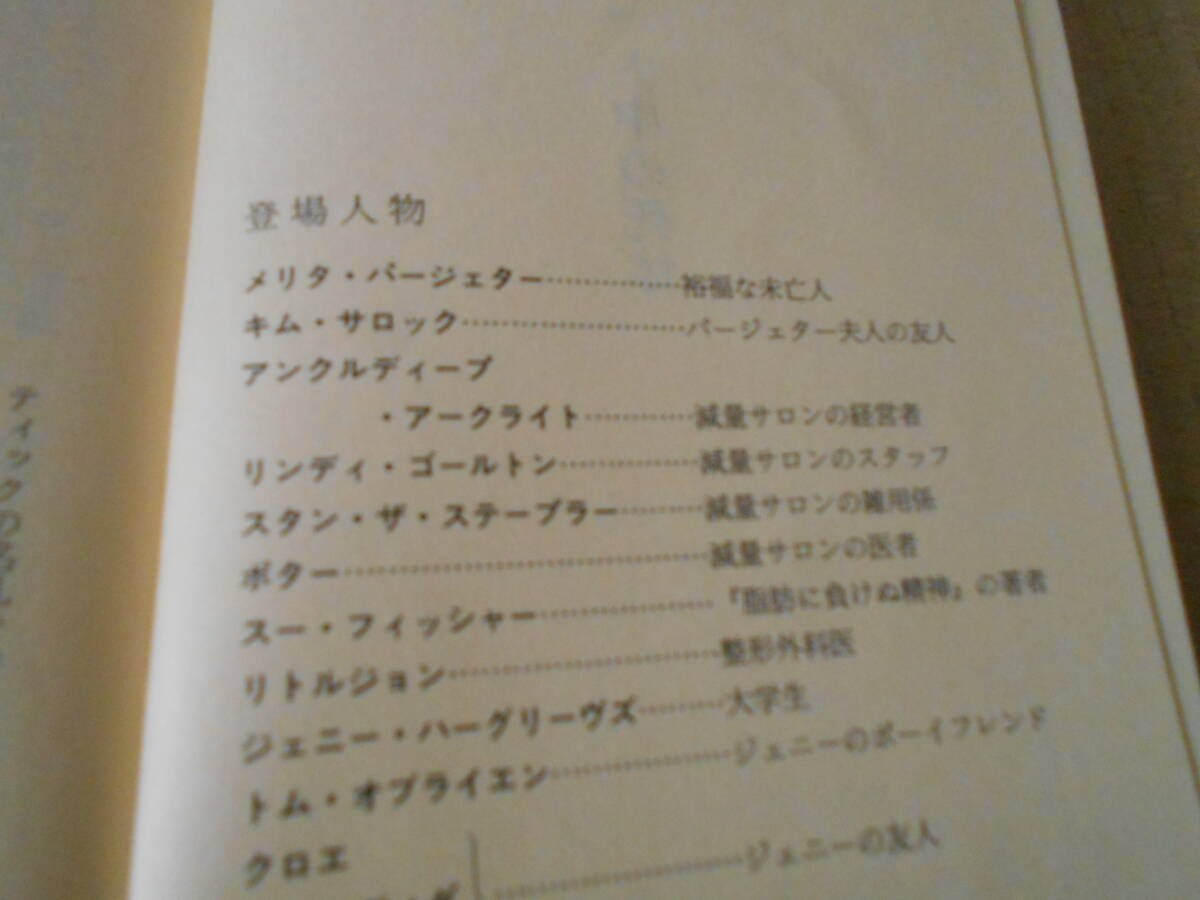 登場人物
メリタ・パージェター……………裕福な未亡人
キム・サロック……………………パージェター夫人の友人
アンクルディープ
・アークライト…………減量サロンの経営者
リンディ・ゴールトン……………減量サロンのスタッフ
スタン・ザ・ステープラー………減量サロンの雑用係
ポター…………………………………減量サロンの医者
スー・フィッシャー………………『脂肪に負けぬ精神』の著者
リトルジョン………………………整形外科医
ジェニー・ハーグリーヴズ………大学生
トム・オブライエン………………ジェニーのボーイフレンド
クロエ
………………………ジェニーの友人
ティックの